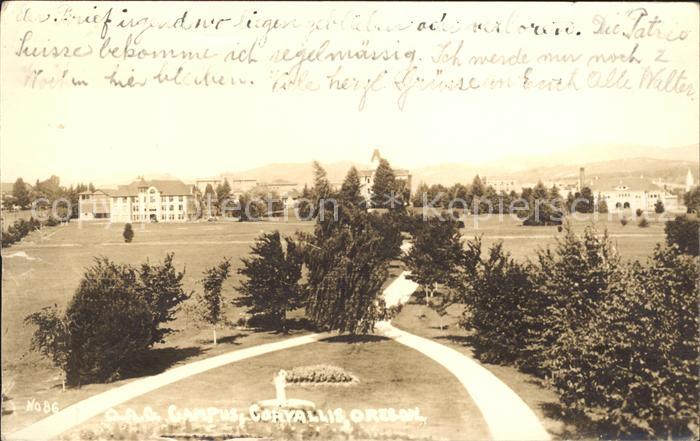 der Brief irgendwo liegen geblieben oder verloren. Die "Patrie
Suisse bekomme ich regelmässig. Ich werde nur noch 2
Wochen hier bleiben. Viele herzl Grüsse an Euch Alle Walter,
© Verwendung der Kopien
No 86
O.A.C. CAMPUS, CORVALLIS OREGON.